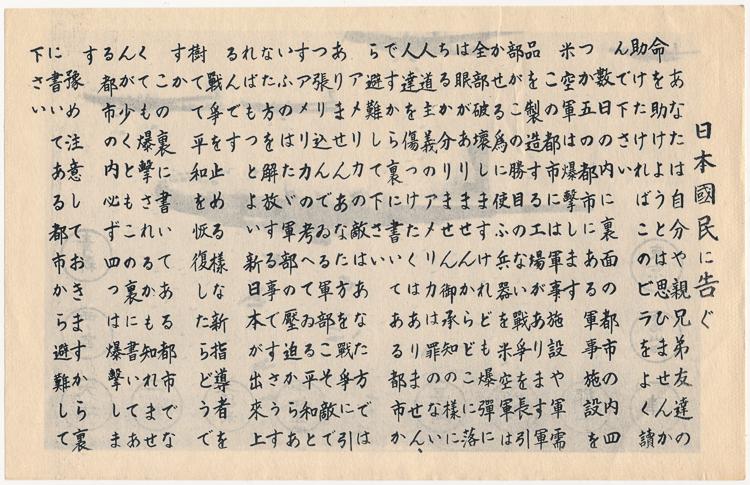 日本國民に告ぐ
あなたは自分や親兄弟友達の
命を助けようとは思ひませんか
助けたければこのビラをよく讀
んで下さい
数日の内に裏面の都市の内四
つか五つの都市にある軍事施設を
米空軍は爆撃します
この都市には軍事施設や軍需
品を製造する工場があります軍
部がこの勝目のない戦争を長引
かせる為に使ふ兵器を米空軍は
全部破壊しますけれども爆彈に
は眼がありませんからどこに落
ちるか分りません御承知の様に
人道主義のアメリカは罪のない
人達を傷つけたくはありませ
んですから裏に書いてある都市か
ら避難して下さい
アメリカの敵はあなた方では
ありませんあなた方を戦争に引
張り込んでゐる軍部こそ敵で
すアメリカの考へてゐる平和と
いふのはたゞ軍部の壓迫からあ
なた方を解放する事ですさうす
ればもつとよい新日本が出來上
るんです
戦争を止める様な新指導者を
樹てゝ平和を恢復したらどうで
すか
この裏に書いてある都市でな
くても爆撃されるかも知れませ
んが少くともこの裏に書いてある
都市の内必ず四つは爆撃しま
す
豫め注意しておきますから裏
に書いてある都市から避難して
下さい